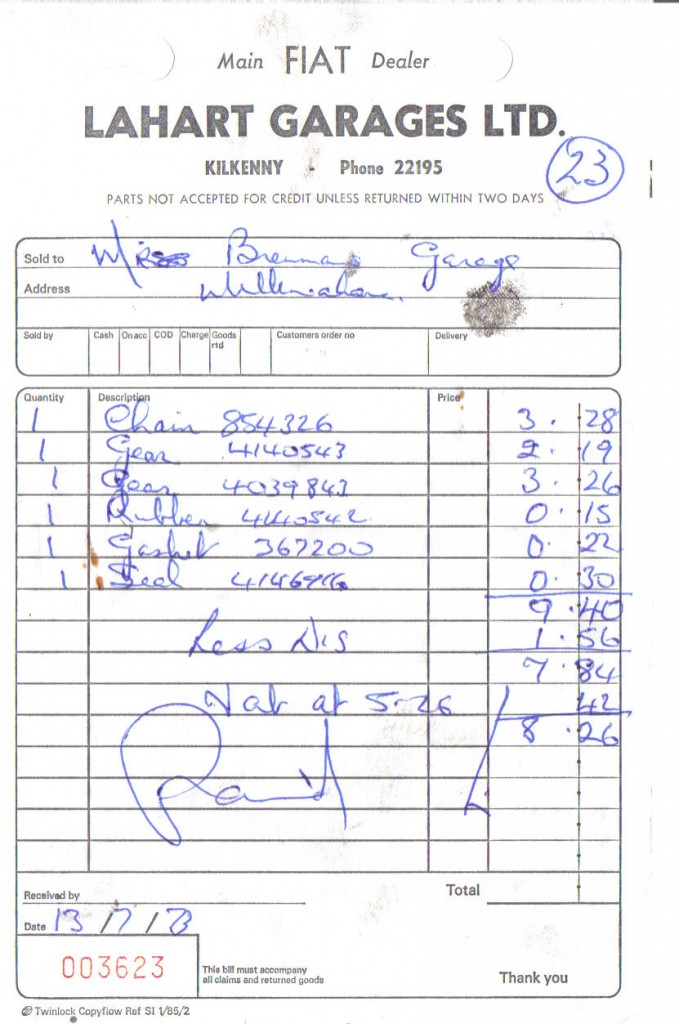 Main FIAT Dealer
LAHART GARAGES LTD.
KILKENNY - Phone 22195
23
PARTS NOT ACCEPTED FOR CREDIT UNLESS RETURNED WITHIN TWO DAYS
Sold to Brennans Garage
Address
Sold by Cash On acc COD Charge Goods rtd Customers order no Delivery
Quantity Description Price
1 Chain 854326 3. 28
1 Gear 4140543 2. 19
1 Gear 4039843 3. 26
1 Rubber 4140542 0. 15
1 Gasket 367200 0. 22
1 Seal 0. 30
9.40
Less Dis 1.56
7.84
Vat at 5-26 42
8.26
Paid
Received by Total
Date 13/7/73
003623
This bill must accompany
all claims and returned goods
Thank you
Twinlock Copyflow Ref SI 1/85/2